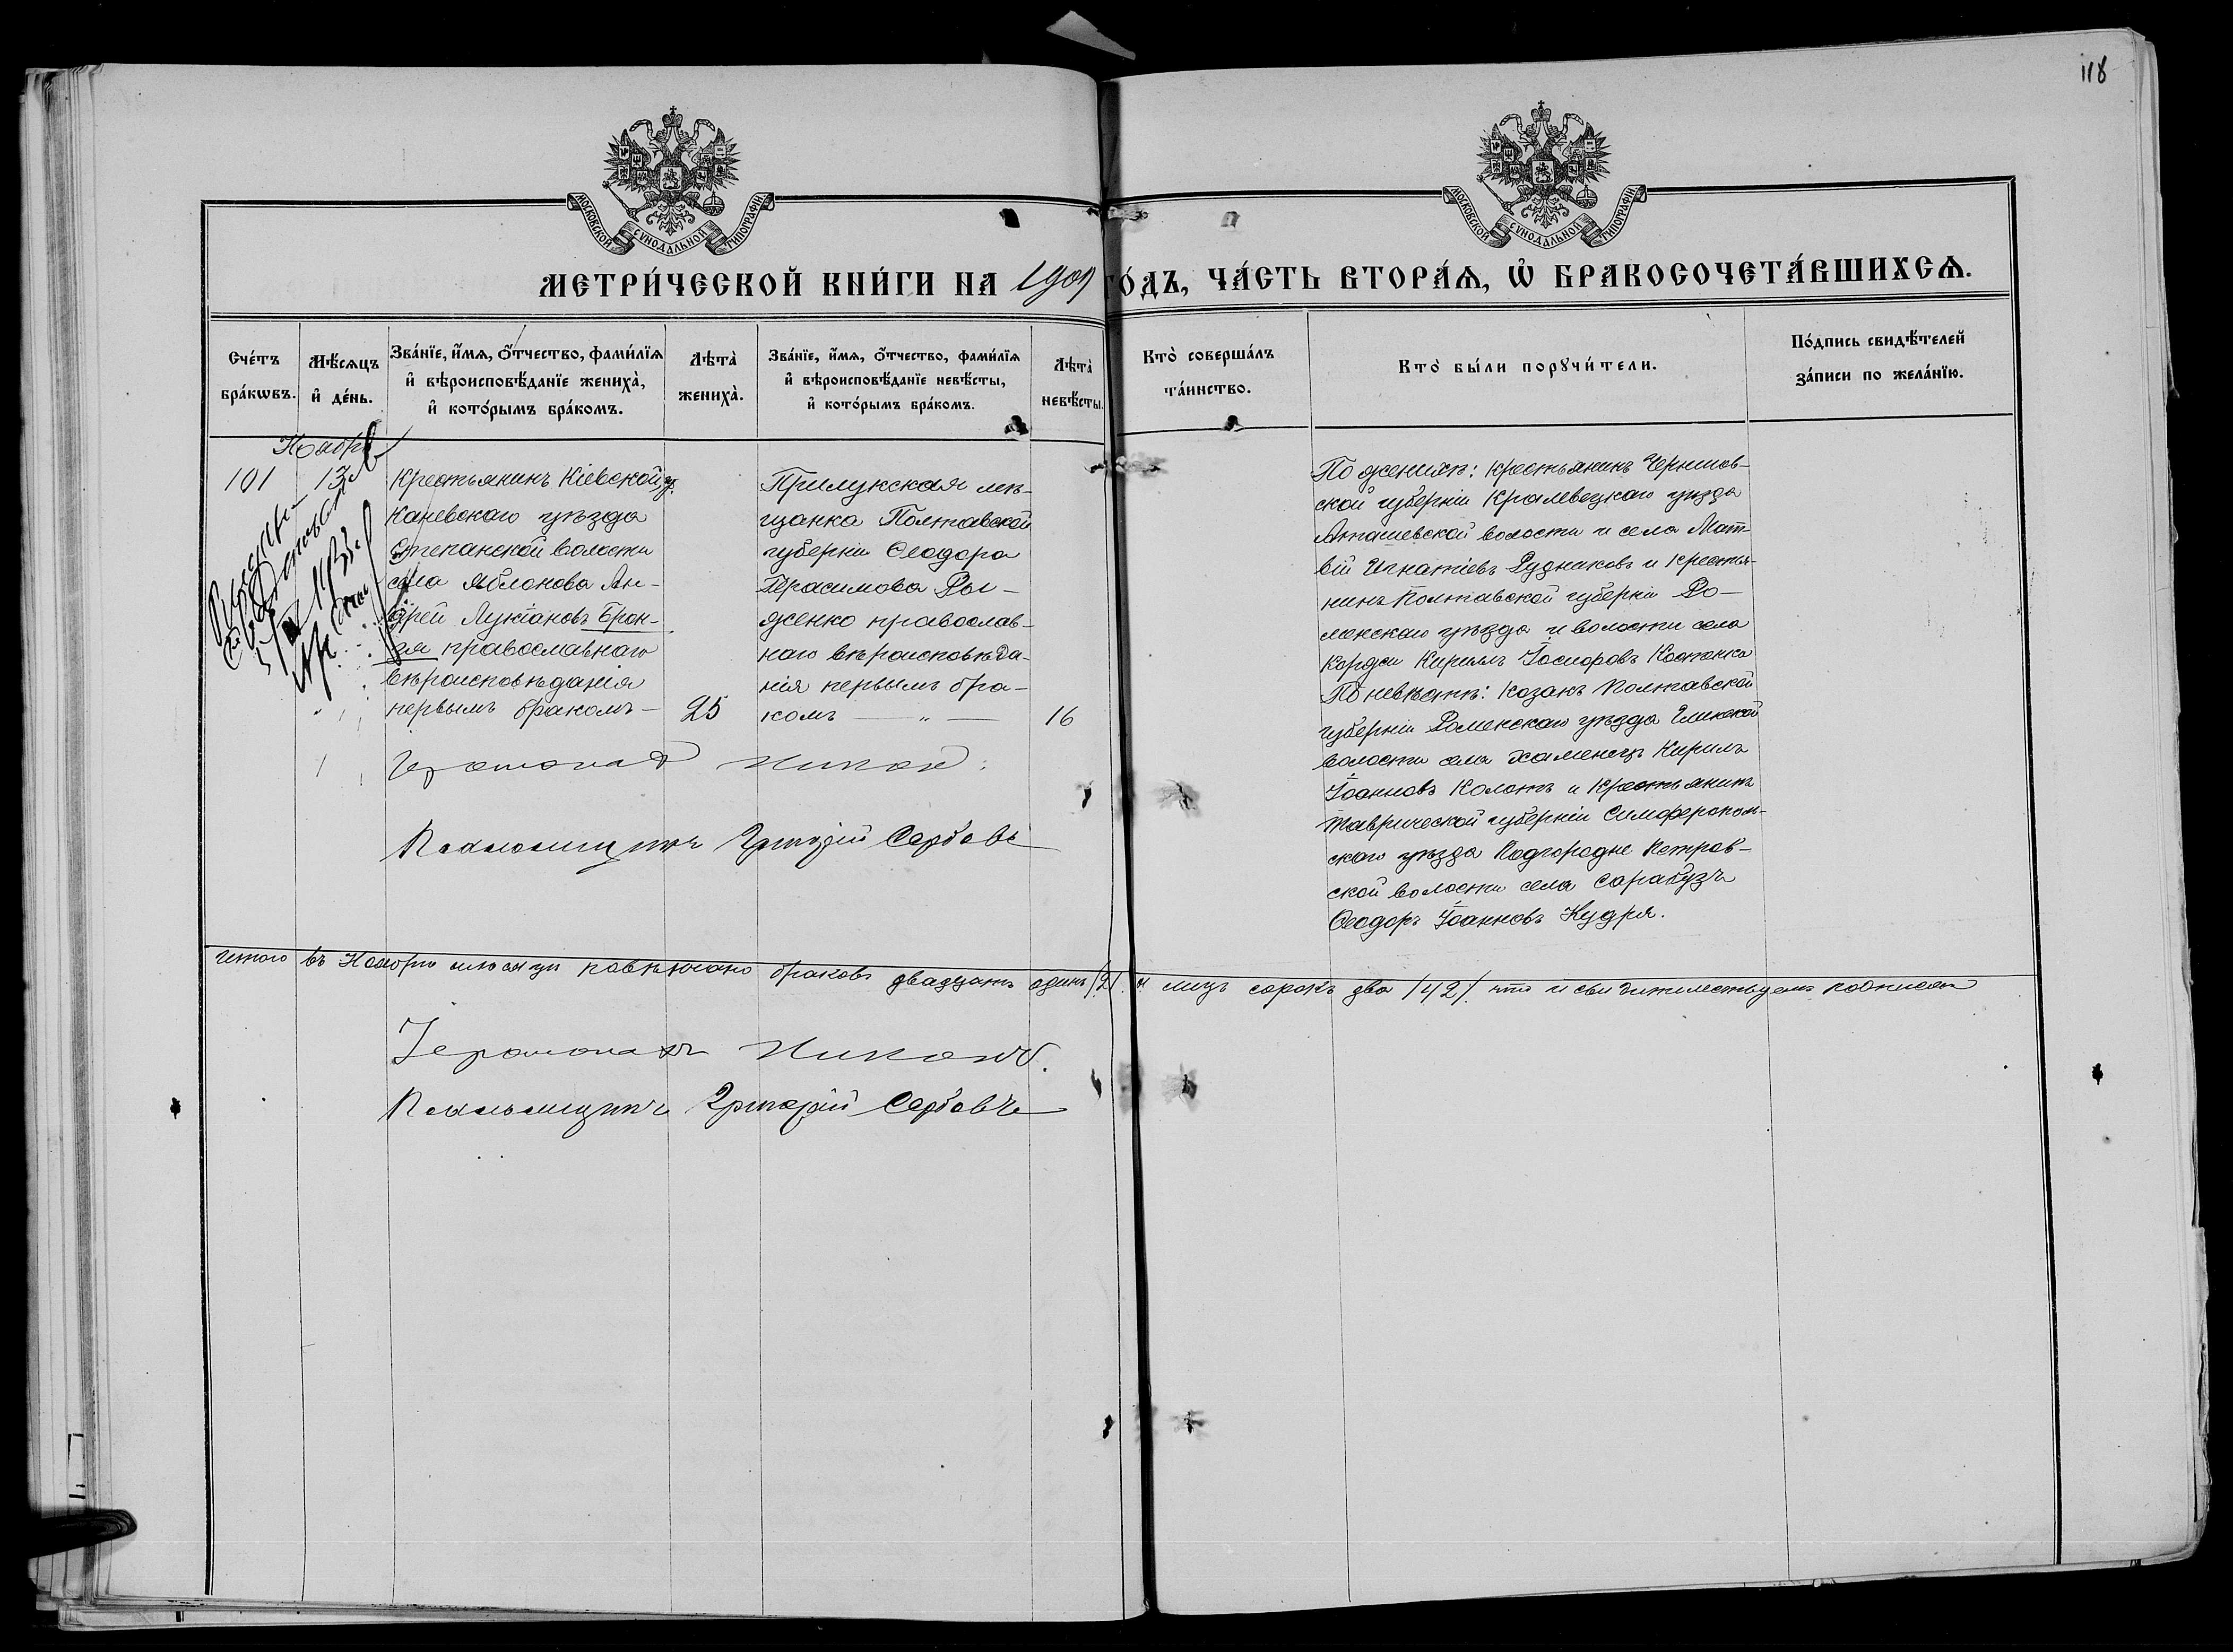 118
МОСКОВСКОЙ СУНОДАЛЬНОЙ ТИПОГРАФІИ
МОСКОВСКОЙ СУНОДАЛЬНОЙ ТИПОГРАФІИ
МЕТРИ́ЧЕСКОЙ КНИ́ГИ НА 1909 ГО́ДЪ, ЧА́СТЬ ВТОРА́Я, Ѡ БРАКОСОЧЕТА́ВШИХСЯ.
Сче́тъ бра́кѡвъ.
Мѣ́сяцъ и де́нь.
Зва́нїе, и́мя, о́тчество, фами́лїя и вѣроисповѣ́данїе жениха̀, и кото́рымъ бра́комъ.
Лѣта̀ жениха̀.
Зва́нїе, и́мя, о́тчество, фами́лїя и вѣроисповѣ́данїе невѣ́сты, и кото́рымъ бра́комъ.
Лѣта̀ невѣ́сты.
Кто̀ соверша́лъ та́инство.
Кто̀ бы́ли порꙋчи́тели.
По́дпись свидѣ́телей за́писи по жела́нїю.
Ноября
101
13
Крестьянинъ Кіевской г.
Каневскаго уѣзда
Степанской волости
села Яблонова Ан-
дрей Лукіановъ Брон-
зя православнаго
вѣроисповѣданія
первымъ бракомъ —
25
Прилукская мѣ-
щанка Полтавской
губерніи Ѳеодора
Герасимова Ры-
женко православ-
наго вѣроисповѣда-
нія первымъ бра-
комъ — " —
16
По женихѣ: крестьянинъ Чернигов-
ской губерніи Кролевецкаго уѣзда
волости и села Мат-
вій Игнатіевъ Рудниковъ и крестья-
нинъ Полтавской губерніи Ро-
менскаго уѣзда и волости села
Коржи Кириллъ Іосифовъ Костенко
По невѣстѣ: козакъ Полтавской
губерніи Роменскаго уѣзда Глинской
волости села Хоменецъ Кирилъ
Іоанновъ Колотъ и крестьянинъ
Таврической губерніи Симферополь-
скаго уѣзда Подгородне Петров-
ской волости села Сарабузъ
Ѳеодоръ Іоанновъ Кудря.
Іеромонах Никон.
Псаломщикъ Григорій Сербовъ
Итого въ Ноябрѣ мѣсяцѣ повѣнчано браковъ двадцать одинъ /21/. и лицъ сорокъ два /42/. что и свидѣтельствуемъ подписом
Іеромонахъ Никонъ.
Псаломщикъ Григорій Сербовъ